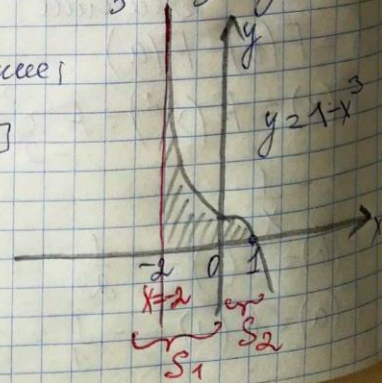 y
y = 1-x³
x
-2 0 1
x=-2
S₁ S₂